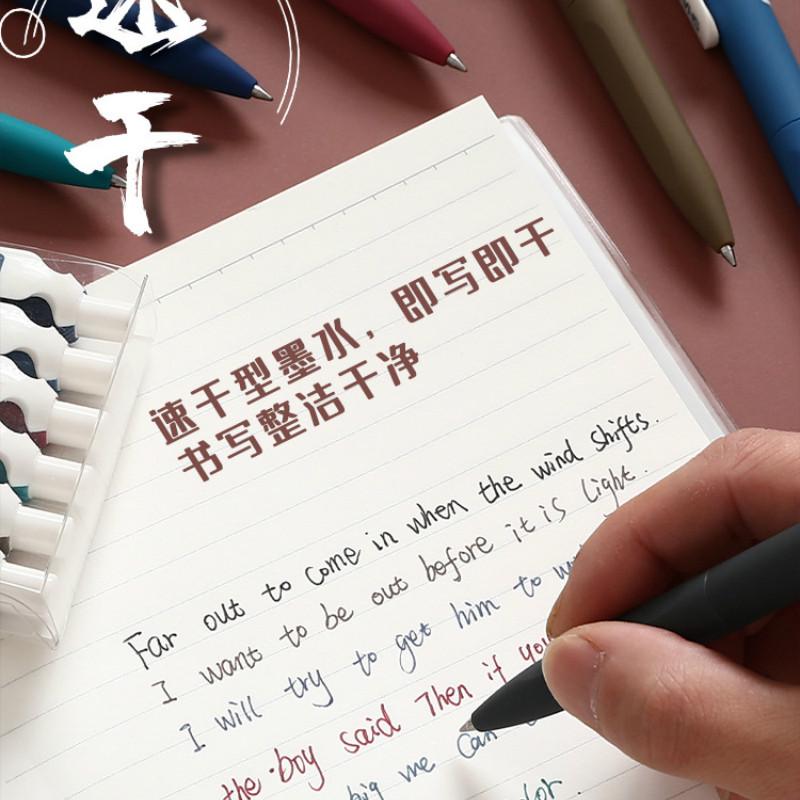 速
干
速干型墨水，即写即干
书写整洁干净
Far out to come in when the wind shifts.
I want to be out before it is light.
I will try to get him to
the boy said Then if you
big me can